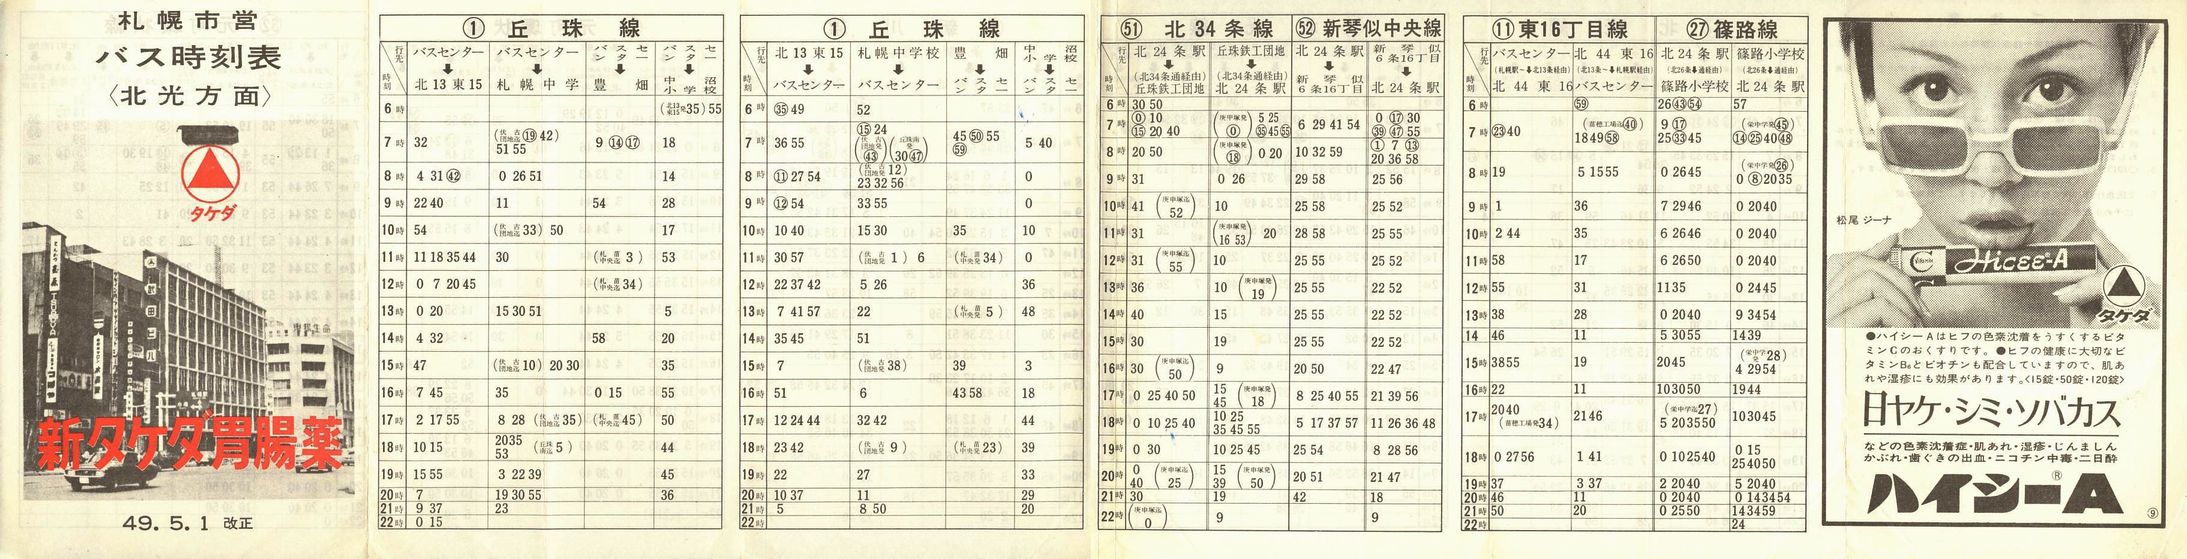 札幌市営
バス時刻表
〈北光方面〉
タケダ
新タケダ胃腸薬
49.5.1 改正
① 丘珠線
行先 時刻
バスセンター ➡ 北13東15
バスセンター ➡ 札幌中学
バスセンター ➡ 豊畑
バスセンター ➡ 中沼小学校
6時 (北13東15発35) 55
7時 32 | (伏古団地迄⑲ 42) 51 55 | 9 ⑭ ⑰ | 18
8時 4 31 ㊷ | 0 26 51 | 14
9時 22 40 | 11 | 54 | 28
10時 54 | (伏古団地迄33) 50 | 17
11時 11 18 35 44 | 30 | (札苗中央迄 3) | 53
12時 0 7 20 45 | (札苗中央迄34)
13時 0 20 | 15 30 51 | 5
14時 4 32 | 58 | 20
15時 47 | (伏古団地迄10) 20 30 | 35
16時 7 45 | 35 | 0 15 | 55
17時 2 17 55 | 8 28 (伏古団地迄35) | (札苗中央迄45) | 50
18時 10 15 | 20 35 53 (丘珠南迄 5) | 44
19時 15 55 | 3 22 39 | 45
20時 7 | 19 30 55 | 36
21時 9 37 | 23
22時 0 15
① 丘珠線
行先 時刻
北13東15 ➡ バスセンター
札幌中学校 ➡ バスセンター
豊畑 ➡ バスセンター
中沼小学校 ➡ バスセンター
6時 ㉟ 49 | 52
7時 36 55 | ⑮ 24 (伏古団地発㊸) (丘珠南発 30 ㊼) | 45 ㊿ 55 59 | 5 40
8時 ⑪ 27 54 | (伏古団地発12) 23 32 56 | 0
9時 ⑫ 54 | 33 55 | 0
10時 10 40 | 15 30 | 35 | 10
11時 30 57 | (伏古団地発 1) 6 | (札苗中央発34) | 0
12時 22 37 42 | 5 26 | 36
13時 7 41 57 | 22 | (札苗中央発 5) | 48
14時 35 45 | 51
15時 7 | (伏古団地発38) | 39 | 3
16時 51 | 6 | 43 58 | 18
17時 12 24 44 | 32 42 | 44
18時 23 42 | (伏古団地発 9) | (札苗中央発23) | 39
19時 22 | 27 | 33
20時 10 37 | 11 | 29
21時 5 | 8 50 | 20
22時
㊿¹ 北34条線
㊿² 新琴似中央線
行先 時刻
北24条駅 ➡ (北34条通経由) 丘珠鉄工団地
丘珠鉄工団地 (北34条通経由) ➡ 北24条駅
北24条駅 ➡ 新琴似6条16丁目
新琴似6条16丁目 ➡ 北24条駅
6時 30 50
7時 ⓪ 10 ⑮ 20 40 | (庚申塚発⓪) 5 25 ㉟ 45 55 | 6 29 41 54 | 0 ⑰ 30 ㊴ ㊼ 55
8時 20 50 | (庚申塚発⑱) 0 20 | 10 32 59 | ① 7 ⑬ 20 36 58
9時 31 | 0 26 | 29 58 | 25 56
10時 41 (庚申塚迄52) | 10 | 25 58 | 25 52
11時 31 | (庚申塚発16 53) 20 | 28 58 | 25 55
12時 31 (庚申塚迄55) | 10 | 25 55 | 25 52
13時 36 | 10 (庚申塚発19) | 25 55 | 22 52
14時 40 | 15 | 25 55 | 22 52
15時 30 | 19 | 25 55 | 22 52
16時 30 (庚申塚迄50) | 9 | 20 50 | 22 47
17時 0 25 40 50 | 15 45 (庚申塚発18) | 8 25 40 55 | 21 39 56
18時 0 10 25 40 | 10 25 35 45 55 | 5 17 37 57 | 11 26 36 48
19時 0 30 | 10 25 45 | 25 54 | 8 28 56
20時 0 40 (庚申塚迄25) | 15 39 (庚申塚発50) | 20 51 | 21 47
21時 30 | 19 | 42 | 18
22時 (庚申塚迄0) | 9 | 9
⑪ 東16丁目線
㉗ 篠路線
行先 時刻
バスセンター (札幌駅〜➡北13条経由) 北44東16
北44東16 (北13条〜➡札幌駅経由) バスセンター
北24条駅 (北26条➡通経由) 篠路小学校
篠路小学校 (北26条➡通経由) 北24条駅
6時 59 | 26 ㊸ 54 | 57
7時 ㉓ 40 | (苗穂工場迄㊵) 18 49 58 | 9 ⑰ 25 ㉝ 45 | (栄中学発㊺) ⑭ ㉕ 40 ㊽
8時 19 | 5 15 55 | 0 26 45 | (栄中学発㉖) 0 ⑧ 20 35
9時 1 | 36 | 7 29 46 | 0 20 40
10時 2 44 | 35 | 6 26 46 | 0 20 40
11時 58 | 17 | 6 26 50 | 0 20 40
12時 55 | 31 | 11 35 | 0 24 45
13時 38 | 28 | 0 20 40 | 9 34 54
14時 46 | 11 | 5 30 55 | 14 39
15時 38 55 | 19 | 20 45 | (栄中学発28) 4 29 54
16時 22 | 11 | 10 30 50 | 19 44
17時 20 40 (苗穂工場発34) | 21 46 | (栄中学迄27) 5 20 35 50 | 10 30 45
18時 0 27 56 | 1 41 | 0 10 25 40 | 0 15 25 40 50
19時 37 | 3 37 | 2 20 40 | 5 20 40
20時 46 | 11 | 0 20 40 | 0 14 34 54
21時 50 | 20 | 0 25 50 | 14 34 59
22時 24
松尾 ジーナ
Vitamin C
Hicee-A
タケダ
●ハイシーAはヒフの色素沈着をうすくするビタ
ミンCのおくすりです。●ヒフの健康に大切なビ
タミンB₆とビオチンも配合していますので、肌あ
れや湿疹にも効果があります。〈15錠・50錠・120錠〉
日ヤケ・シミ・ソバカス
などの色素沈着症・肌あれ・湿疹・じんましん
かぶれ・歯ぐきの出血・ニコチン中毒・二日酔
ハイシーA®
⑨